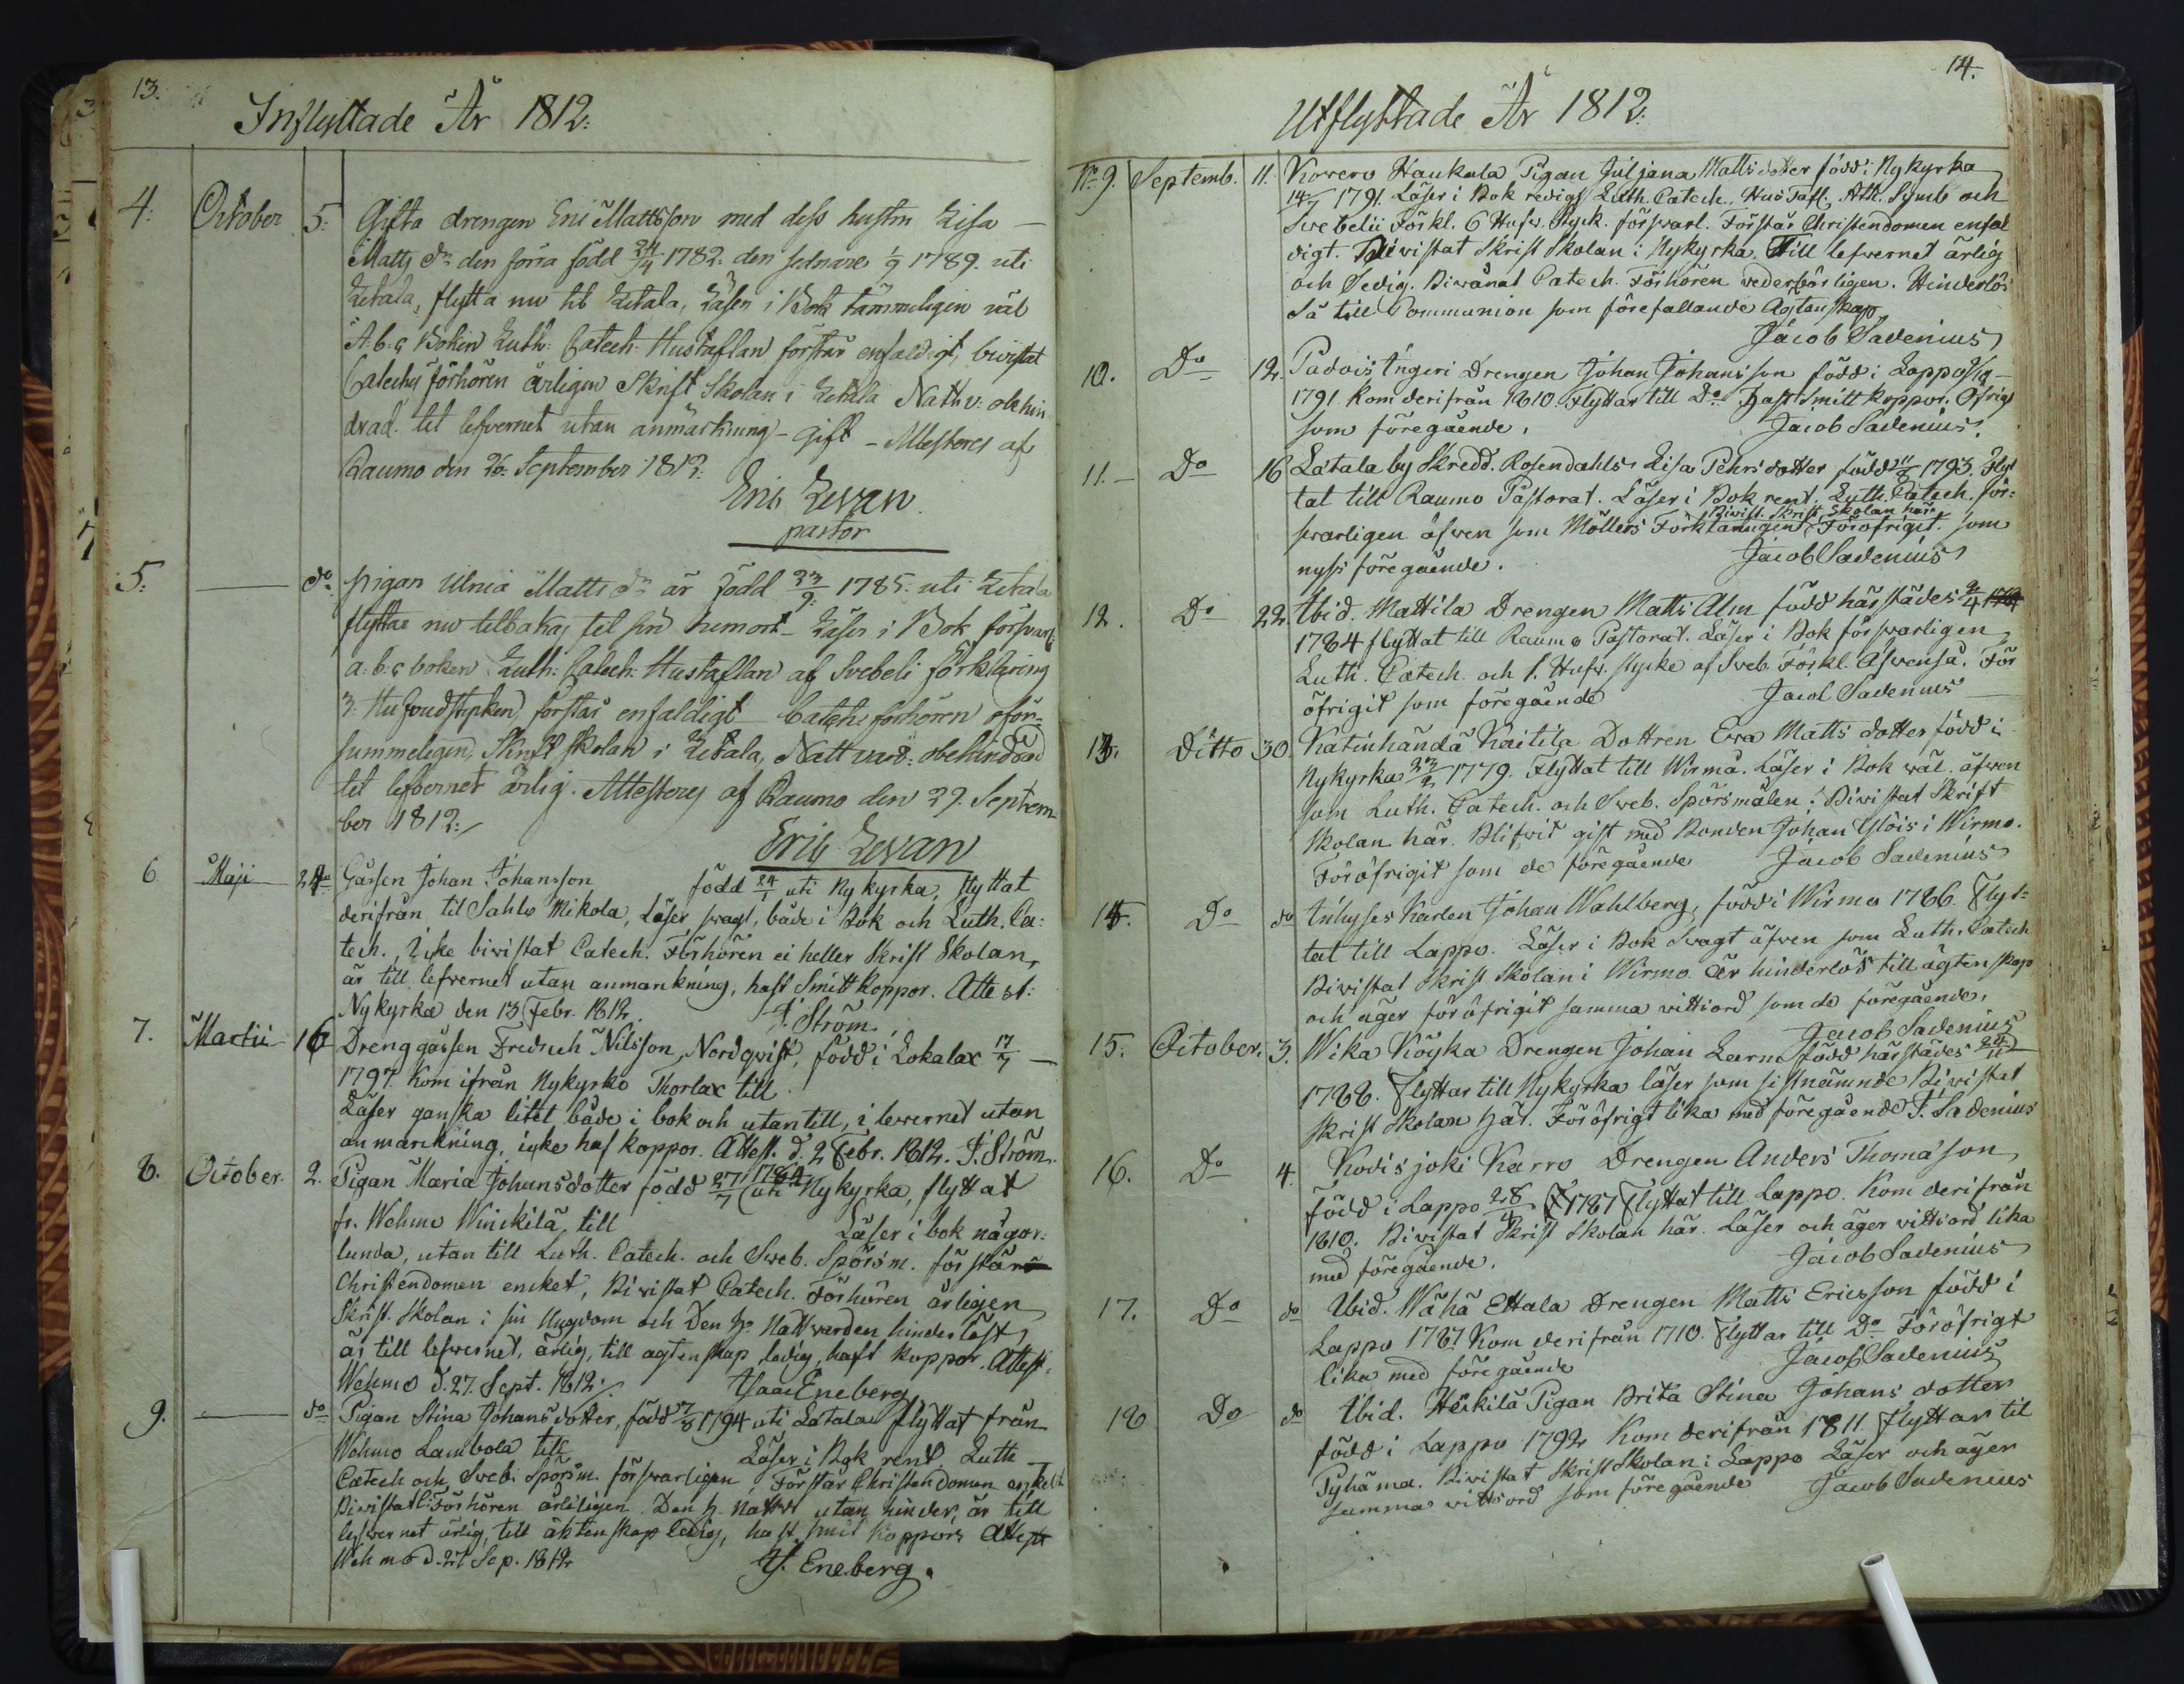 13.
Inflyttade År 1812.
4. October 5. Gifta drengen Eric Mattsson med dess hustru Lisa
Matts dr den förra född 24/4 1782. den sednare 1/9 1789. uti
Letala, flytta nu til Letala, Läser i Bok tämmeligen väl
A:b:c Boken Luth: Catech: Hustaflan förstår enfaldigt, bivistat
Cateches förhören årligen Skrift Skolan i Letala Nattv: obehin
drad. til lefvernet utan anmärkning – Gift – Attesteres af
Raumo den 26. September 1812.
Eric Levan
pastor
5. — do pigan Ulrica Matts dr är född 23/9 1785. uti Letala
flyttar nu tilbakas til sin hemort – Läser i Bok försvarl:
a:b:c boken Luth: Catech: Hustaflan af Svebeli förklaring
3. Hufvudstycken, förstår enfaldigt – Cateches förhören oför-
summeligen, Skrift skolan i Letala, Nattvard: obehindrad
til lefvernet ärlig. Attesteres af Raumo den 29. Septem
ber 1812.
Eric Levan
6 Maji 24 Gåssen Johan Johansson född 24/1 uti Nykyrka, flyttat
derifrån til Sahlo Mikola, Läser svagt, både i Bok och Luth. Ca:
tech. Icke bivistat Catech. Förhören ei heller Skrift Skolan,
är till lefvernet utan anmarkning, haft Smittkoppor. Attest:
Nykyrka den 13 Febr. 1812. J. Ström.
7. Martii 16 Drenggåssen Fredrich Nilsson Nordqvist, född i Lokalax 17/7
1797. Kom ifrån Nykyrko Thorlax till
Läser ganska litet både i bok och utantill, i levernet utan
anmarckning, icke haf koppor. Attest. d. 2 Febr. 1812. J. Ström.
8. October. 2. Pigan Maria Johansdotter född 27/7 1769 uti Nykyrka, flyttat
fr. Wehmo Winckilä till Läser i bok någor:
lunda, utan till Luth. Catech. och Sweb. Spörsm. förstår
Christendomen encket, Bivistat Catech. Förhören årligen
Skrift. Skolan i sin Ungdom och Den H. Nattvarden hinderlöst
är till lefvernet, ärlig, till agtenskap ledig, haft koppor. Attest.
Wehmo d. 27. Sept. 1812. Isaac Eneberg
9. — do Pigan Stina Johansdotter, född 17/8 1794 uti Letala flyttat från
Wehmo Lambola till Läser i Bok rent. Luth
Catech och Sweb. Spörsm. försvarligen Förstår Christendomen enkelt
Bivistat C: Förhören årligen. Den H. Nattv utan hinder, är till
lefvernet ärlig, till äktenskap ledig, haft smit koppor Attest
Wehmo d. 27 Sep. 1812 Is. Eneberg.
14.
Utflyttade År 1812.
No 9. Septemb. 11. Korvero Haukala Pigan Juljana Matts dotter född i Nykyrka
14/7 1791. Läser i Bok redigt Luth. Catech. Hus Tafl. Ath. Symb och
Swebelii Förkl. 6 Hufw. Styck. försvarl. Förstår Christendomen enfal
digt. Bivistat Skrift Skolan i Nykyrka. Till lefvernet ärlig
och Sedig. Biwånat Catech. Förhören vederbörligen. Hinderlös
Så till Communion som förefallande Ägtenskap
Jacob Sadenius
10. Do 12. Padois Ingeri Drengen Johan Johansson född i Lappo
1791. Kom derifrån 1810. Flyttar till Do. Haft Smittkoppor. Öfrigt
som föregående. Jacob Sadenius.
11. Do 16 Latala by Skredd. Rosendahls Lisa Pehrsdotter född 1793. Flyt
tat till Raumo Pastorat. Läser i Bok rent. Luth. Catech. för:
svarligen äfwen som Möllers Förklaringen Biwist. Skrift Skolan här Föröfrigit som
nyss föregående. Jacob Sadenius
12. Do 22 Ibid. Mattila Drengen Matts Alm född härstädes 9/4
1784 flyttat till Raumo Pastorat. Läser i Bok försvarligen
Luth. Catech. och 1. Hufv. stycke af Sveb. Förkl. Äfvenså. För
öfrigit som föregående Jacob Sadenius
13. Ditto 30. Katinhändä Kaitila Dottren Ewa Matts dotter född i
Nykyrka 1779. Flyttat till Wirmo. Läser i Bok wäl. äfwen
som Luth. Catech. och Sveb. Spörsmålen. Biwistat Skrift
Skolan här. Blifwit gift med Bonden Johan Ylöis i Wirmo.
Föröfrigit som de föregående Jacob Sadenius
14. Do do Inhyses Karlen Johan Wahlberg, född i Wirmo 1786. Flyt-
tat till Lappo. Läser i Bok Svagt äfwen som Luth. Catech
Biwistat Skrift Skolan i Wirmo. Är hinderlös till ägtenskap
och äger föröfrigit samma vittiord som de föregående.
Jacob Sadenius
15. October. 3. Wika Köyka Drengen Johan Larm född härstädes 24/11
1788. Flyttar till Nykyrka läser som sistnämnde Biwistat
Skrift Skolan här. Föröfrigt lika med föregående J. Sadenius
16. Do 4. Kodisjoki Karro Drengen Anders Thomasson
född i Lappo 28/4 1787 Flyttat till Lappo. Kom derifrån
1810. Biwistat Skrift Skolan här. Läser och äger vittiord lika
med föregående. Jacob Sadenius
17. Do do Ibid. Wähä Ettala Drengen Matts Ericsson född i
Lappo 1787. Kom derifrån 1710. Flyttar till Do Föröfrigt
lika med föregående Jacob Sadenius
18 Do do Ibid. Heikilä Pigan Brita Stina Johans dotter
född i Lappo 1792 Kom derifrån 1811. Flyttar til
Pyhäma. Biwistat Skrift Skolan i Lappo Läser och äger
samma vittsord som föregående Jacob Sadenius